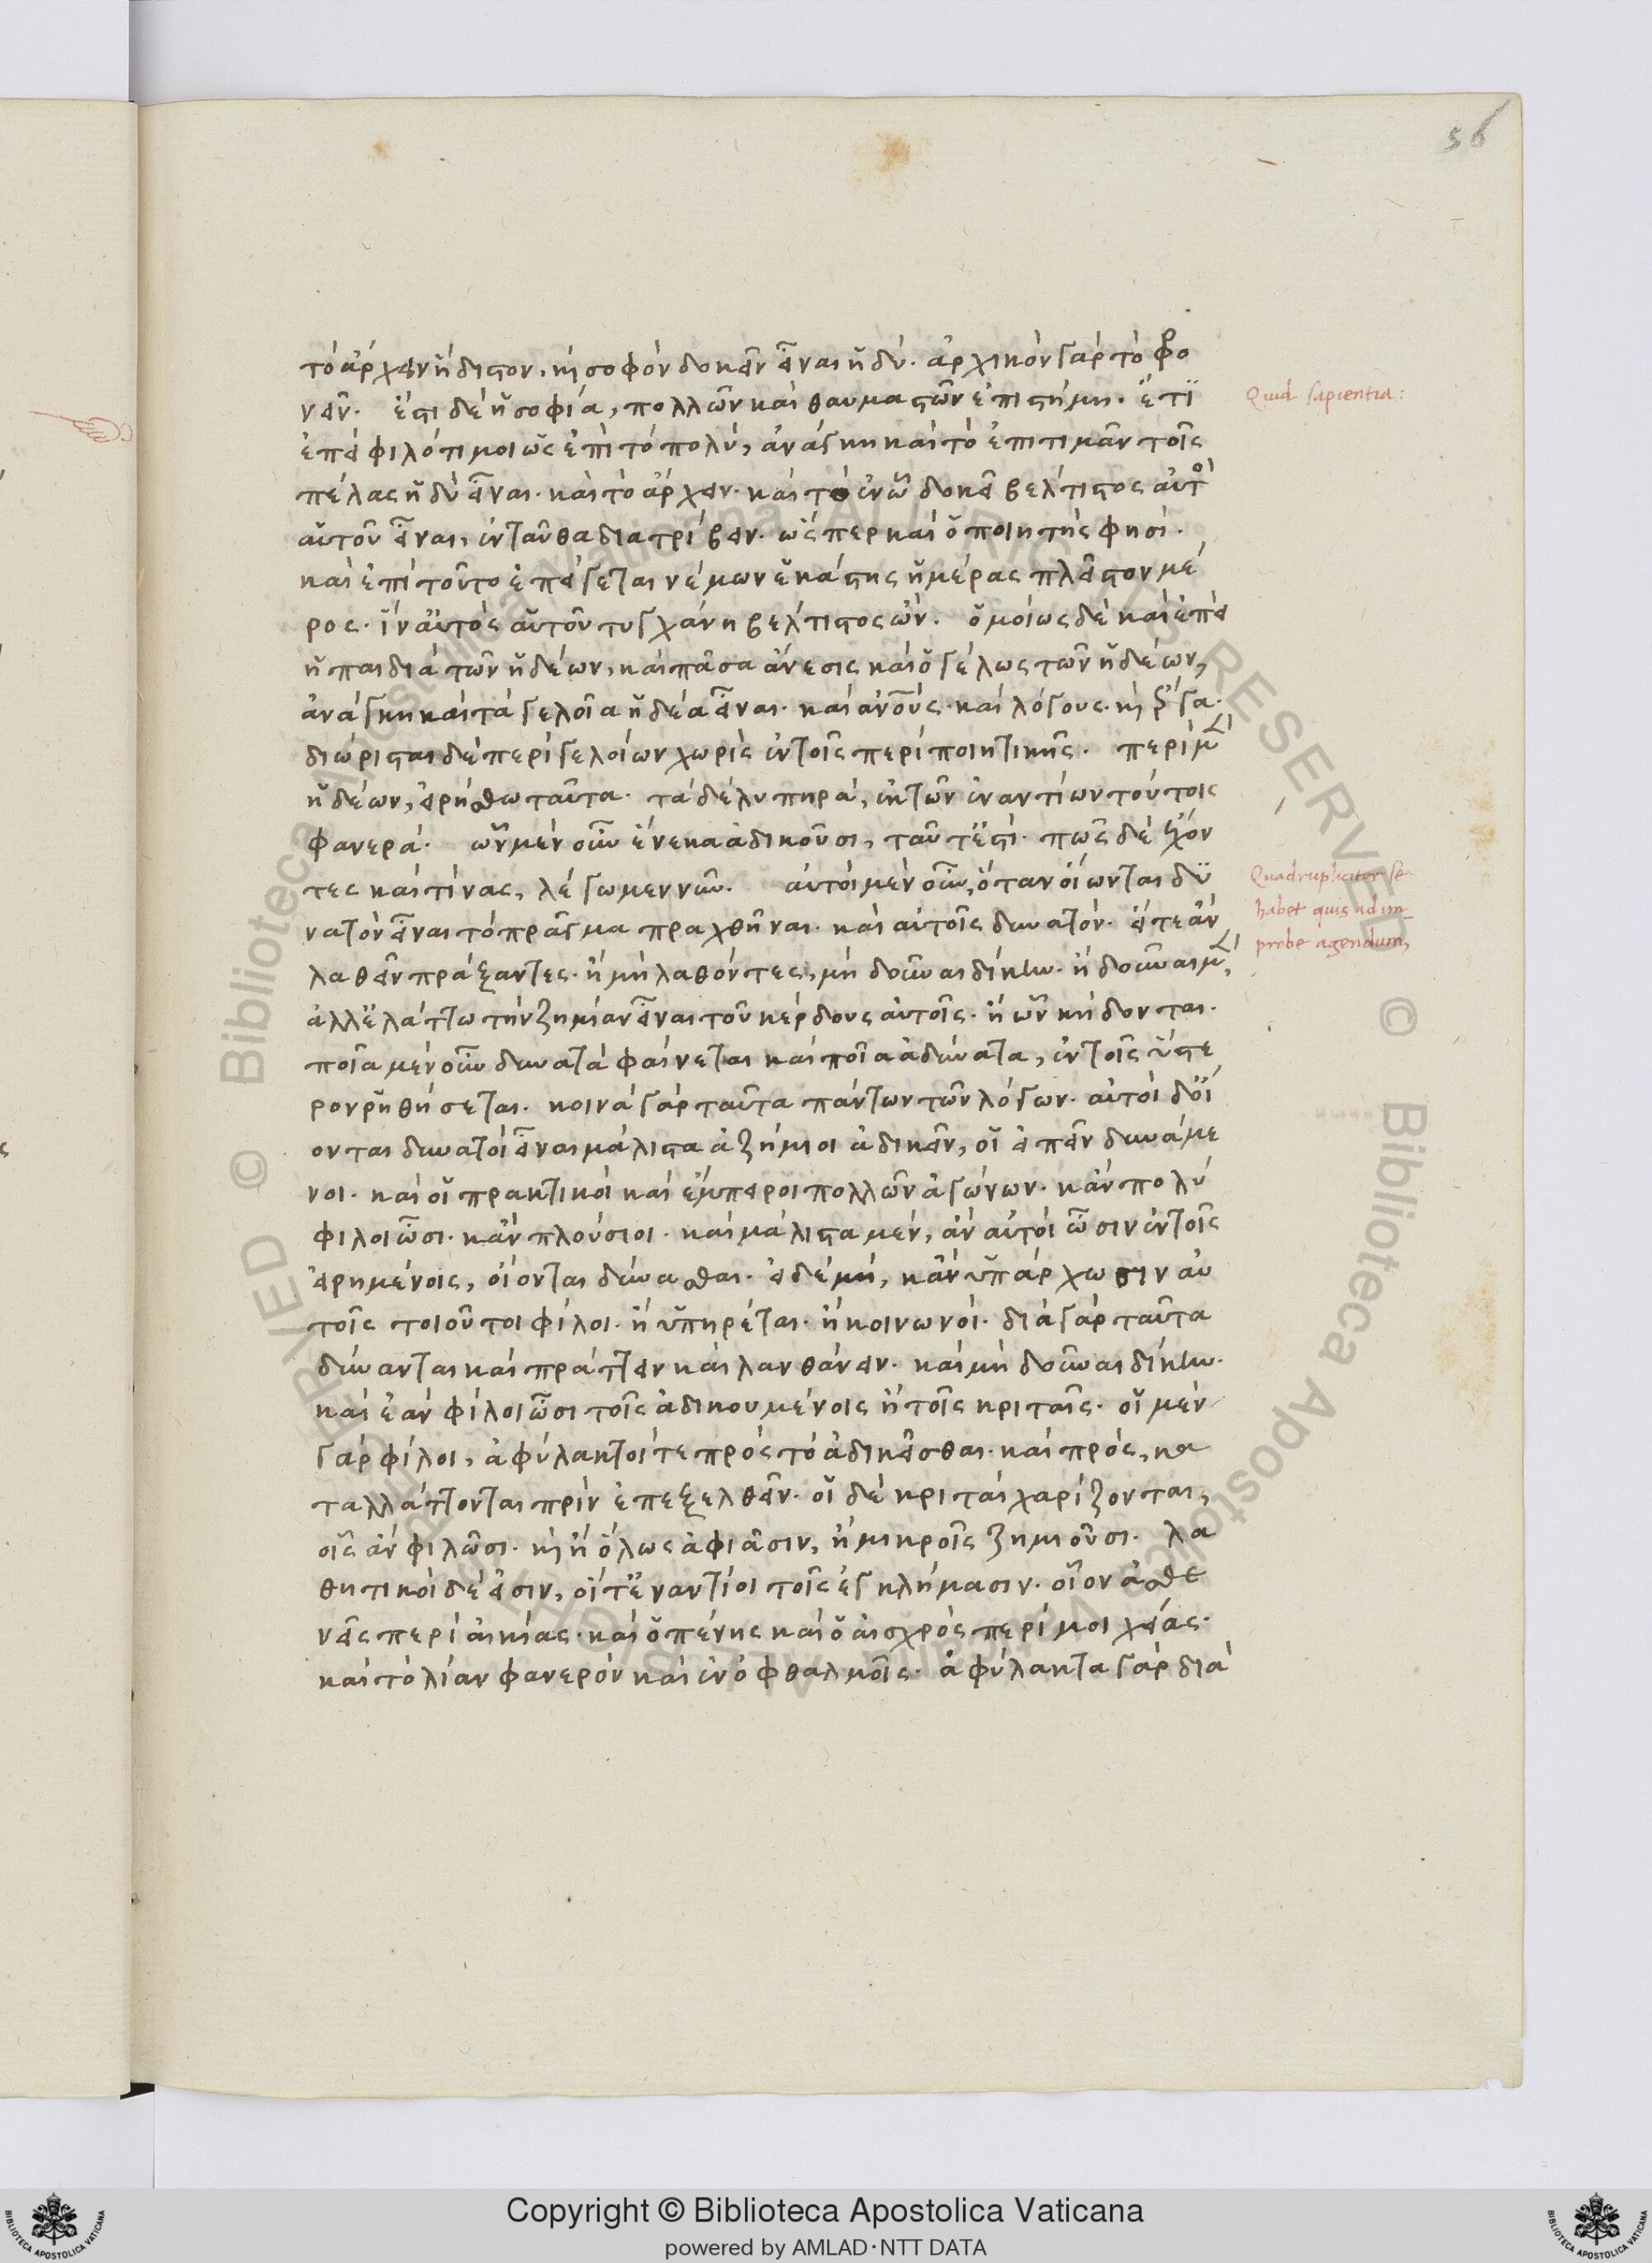 56
τὸ ἄρχειν ἥδιστον, καὶ σοφὸν δοκεῖν εἶναι ἡδύ· ἀρχικὸν γὰρ τὸ φρο
νεῖν· ἔστι δὲ ἡ σοφία, πολλῶν καὶ θαυμαστῶν ἐπιστήμη· ἔτι
ἐπεὶ φιλότιμοι ὡς ἐπὶ τὸ πολύ, ἀνάγκη καὶ τὸ ἐπιτιμᾶν τοῖς
πέλας ἡδὺ εἶναι· καὶ τὸ ἄρχειν· καὶ τὸ ἐν ᾧ δοκεῖ βέλτιστος αὐτὸς
αὑτοῦ εἶναι, ἐνταῦθα διατρίβειν· ὥσπερ καὶ ὁ ποιητής φησι·
καὶ ἐπὶ τοῦτο ἐπείγεται νέμων ἑκάστης ἡμέρας πλεῖστον μέ
ρος· ἵν' αὐτὸς αὑτοῦ τυγχάνῃ βέλτιστος ὤν· ὁμοίως δὲ καὶ ἐπεὶ
ἡ παιδιὰ τῶν ἡδέων, καὶ πᾶσα ἄνεσις καὶ ὁ γέλως τῶν ἡδέων,
ἀνάγκη καὶ τὰ γελοῖα ἡδέα εἶναι· καὶ ἀνους· καὶ λόγους· καὶ ἔργα·
διώρισται δὲ περὶ γελοίων χωρὶς ἐν τοῖς περὶ ποιητικῆς· περὶ μὲν
ἡδέων, εἰρήσθω ταῦτα· τὰ δὲ λυπηρά, ἐκ τῶν ἐναντίων τούτοις
φανερά· ὧν μὲν οὖν ἕνεκα ἀδικοῦσι, ταῦτ' ἐστί· πῶς δὲ ἔχον
τες καὶ τίνας, λέγωμεν νῦν· αὐτοὶ μὲν οὖν, ὅταν οἴωνται δυ
νατὸν εἶναι τὸ πρᾶγμα πραχθῆναι· καὶ αὐτοῖς δυνατόν· εἶτε ἂν
λαθεῖν πράξαντες· ἢ μὴ λαθόντες, μὴ δοῦναι δίκην· ἢ δοῦναι μὲν,
ἀλλ' ἐλάττω τὴν ζημίαν εἶναι τοῦ κέρδους αὐτοῖς· ἢ ὧν κήδονται·
ποῖα μὲν οὖν δυνατὰ φαίνεται καὶ ποῖα ἀδύνατα, ἐν τοῖς ὕστε
ρον ῥηθήσεται· κοινὰ γὰρ ταῦτα πάντων τῶν λόγων· αὐτοὶ δ' οἴ
ονται δυνατοὶ εἶναι μάλιστα ἀζήμιοι ἀδικεῖν, οἱ εἰπεῖν δυνάμε
νοι· καὶ οἱ πρακτικοὶ καὶ ἔμπειροι πολλῶν ἀγώνων· κἂν πολύ
φιλοι ὦσι· κἂν πλούσιοι· καὶ μάλιστα μέν, ἂν αὐτοὶ ὦσιν ἐν τοῖς
εἰρημένοις, οἴονται δύνασθαι· εἰ δὲ μή, κἂν ὑπάρχωσιν αὐ
τοῖς τοιοῦτοι φίλοι· ἢ ὑπηρέται· ἢ κοινωνοί· διὰ γὰρ ταῦτα
δύνανται καὶ πράττειν καὶ λανθάνειν· καὶ μὴ δοῦναι δίκην·
καὶ ἐὰν φίλοι ὦσι τοῖς ἀδικουμένοις ἢ τοῖς κριταῖς· οἱ μὲν
γὰρ φίλοι, ἀφύλακτοί τε πρὸς τὸ ἀδικεῖσθαι· καὶ πρός, κα
ταλλάττονται πρὶν ἐπεξελθεῖν· οἱ δὲ κριταὶ χαρίζονται,
οἷς ἂν φιλῶσι· καὶ ἢ ὅλως ἀφιᾶσιν, ἢ μικροῖς ζημιοῦσι· λα
θητικοὶ δέ εἰσιν, οἵ τ' ἐναντίοι τοῖς ἐγκλήμασιν· οἷον ἀσθε
νεῖς περὶ αἰκίας· καὶ ὁ πένης καὶ ὁ αἰσχρὸς περὶ μοιχείας·
καὶ τὸ λίαν φανερὸν καὶ ἐν ὀφθαλμοῖς· ἀφύλακτα γὰρ διὰ
Quid sapientia:
Quadrupliciter se
habet quis ad im-
probe agendum,
Copyright © Biblioteca Apostolica Vaticana
powered by AMLAD·NTT DATA